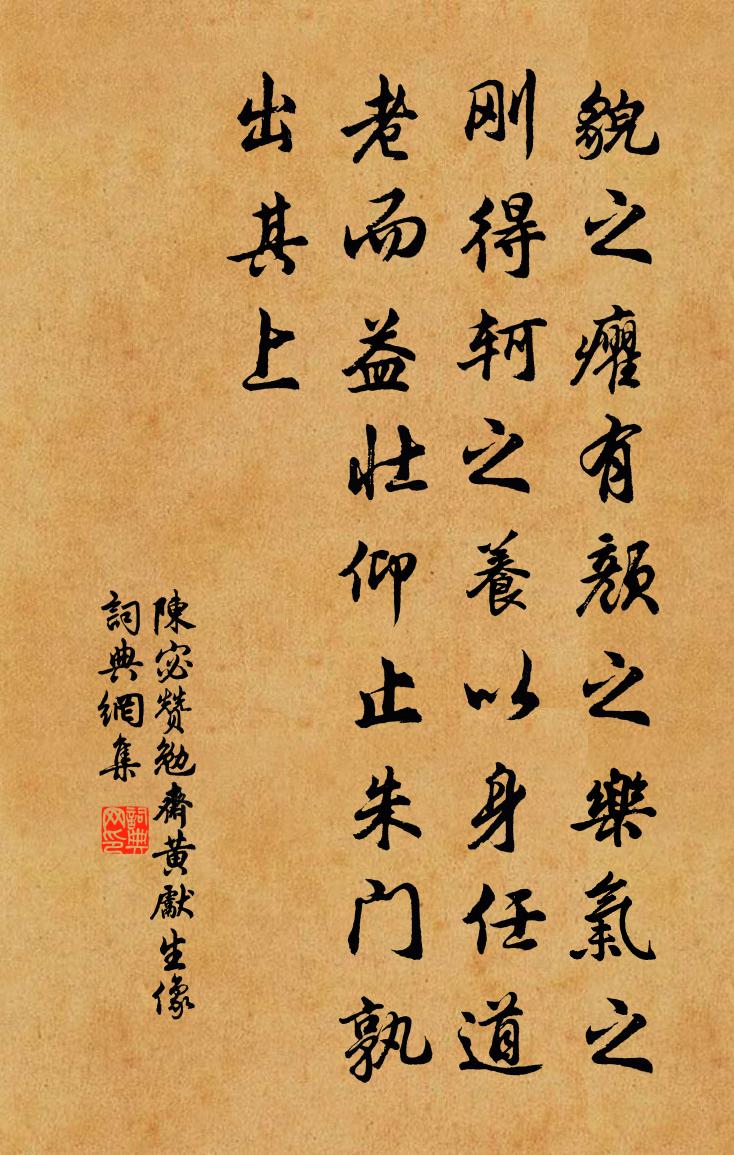 貌之癯有顏之樂氣之
刚得軻之養以身任道
老而益壯仰止朱门孰
出其上
陳宓贊勉齋黃獻生像
詞典網集
詞典网印